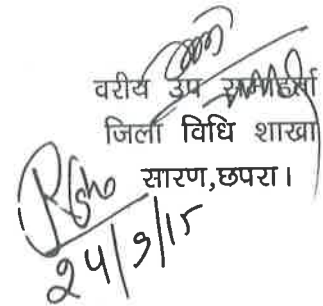 वरीय उप समाहर्ता
जिला विधि शाखा
सारण,छपरा।
24/9/15